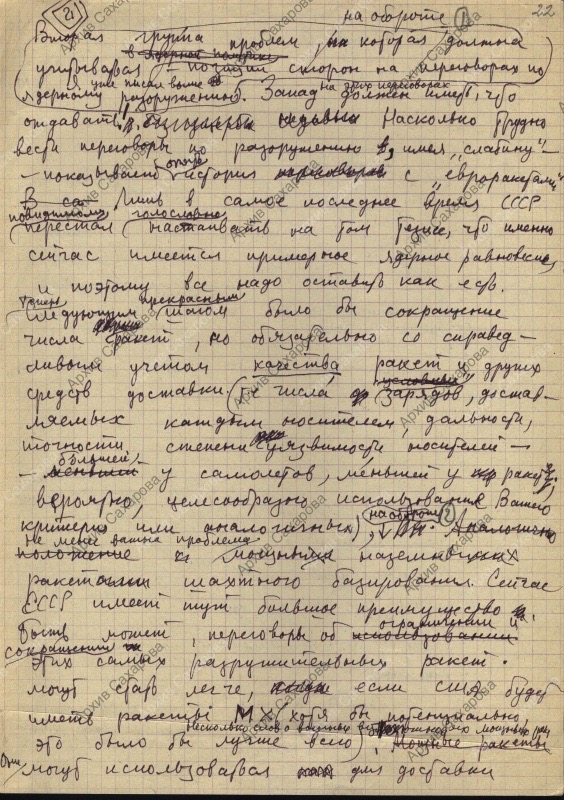 21
22
на обороте 1
Вторая группа проблем, на которая должна
в ядерной политике
учитываться позиции сторон на переговорах по
я уже писал выше
ядерному разоружению. Запад на этих переговорах должен иметь, что
отдавать. Насколько трудно
вести переговоры по разоружению, имея „слабину“ –
– показывает опять история с „евроракетами“
Лишь в самое последнее время СССР
повидимому голословно
перестал настаивать на том тезисе, что именно
сейчас имеется примерное ядерное равновесие,
и поэтому все надо оставить как есть.
Теперь прекрасным
следующим шагом было бы сокращение
числа ракет, но обязательно со справед-
ливым учетом качества ракет и других
средств доставки (т.е числа зарядов, достав-
ляемых каждым носителем, дальности,
точности, степени уязвимости носителей –
– большей, меньшей у самолетов, меньшей у ракет;
вероятно, целесообразно использование Вашего
критерия или аналогичных), на обороте 2 Аналогично
Не менее важна проблема
положение с мощными наземными
ракетами шахтного базирования. Сейчас
СССР имеет тут большое преимущество.
Быть может, переговоры об ограничении и
сокращении этих самых разрушительных ракет
могут стать легче, если США будет
иметь ракеты MX хотя бы потенциально,
несколько слов о мощных
это было бы лучше всего), Мощные ракеты
Они могут использоваться для доставки
Архив Сахарова